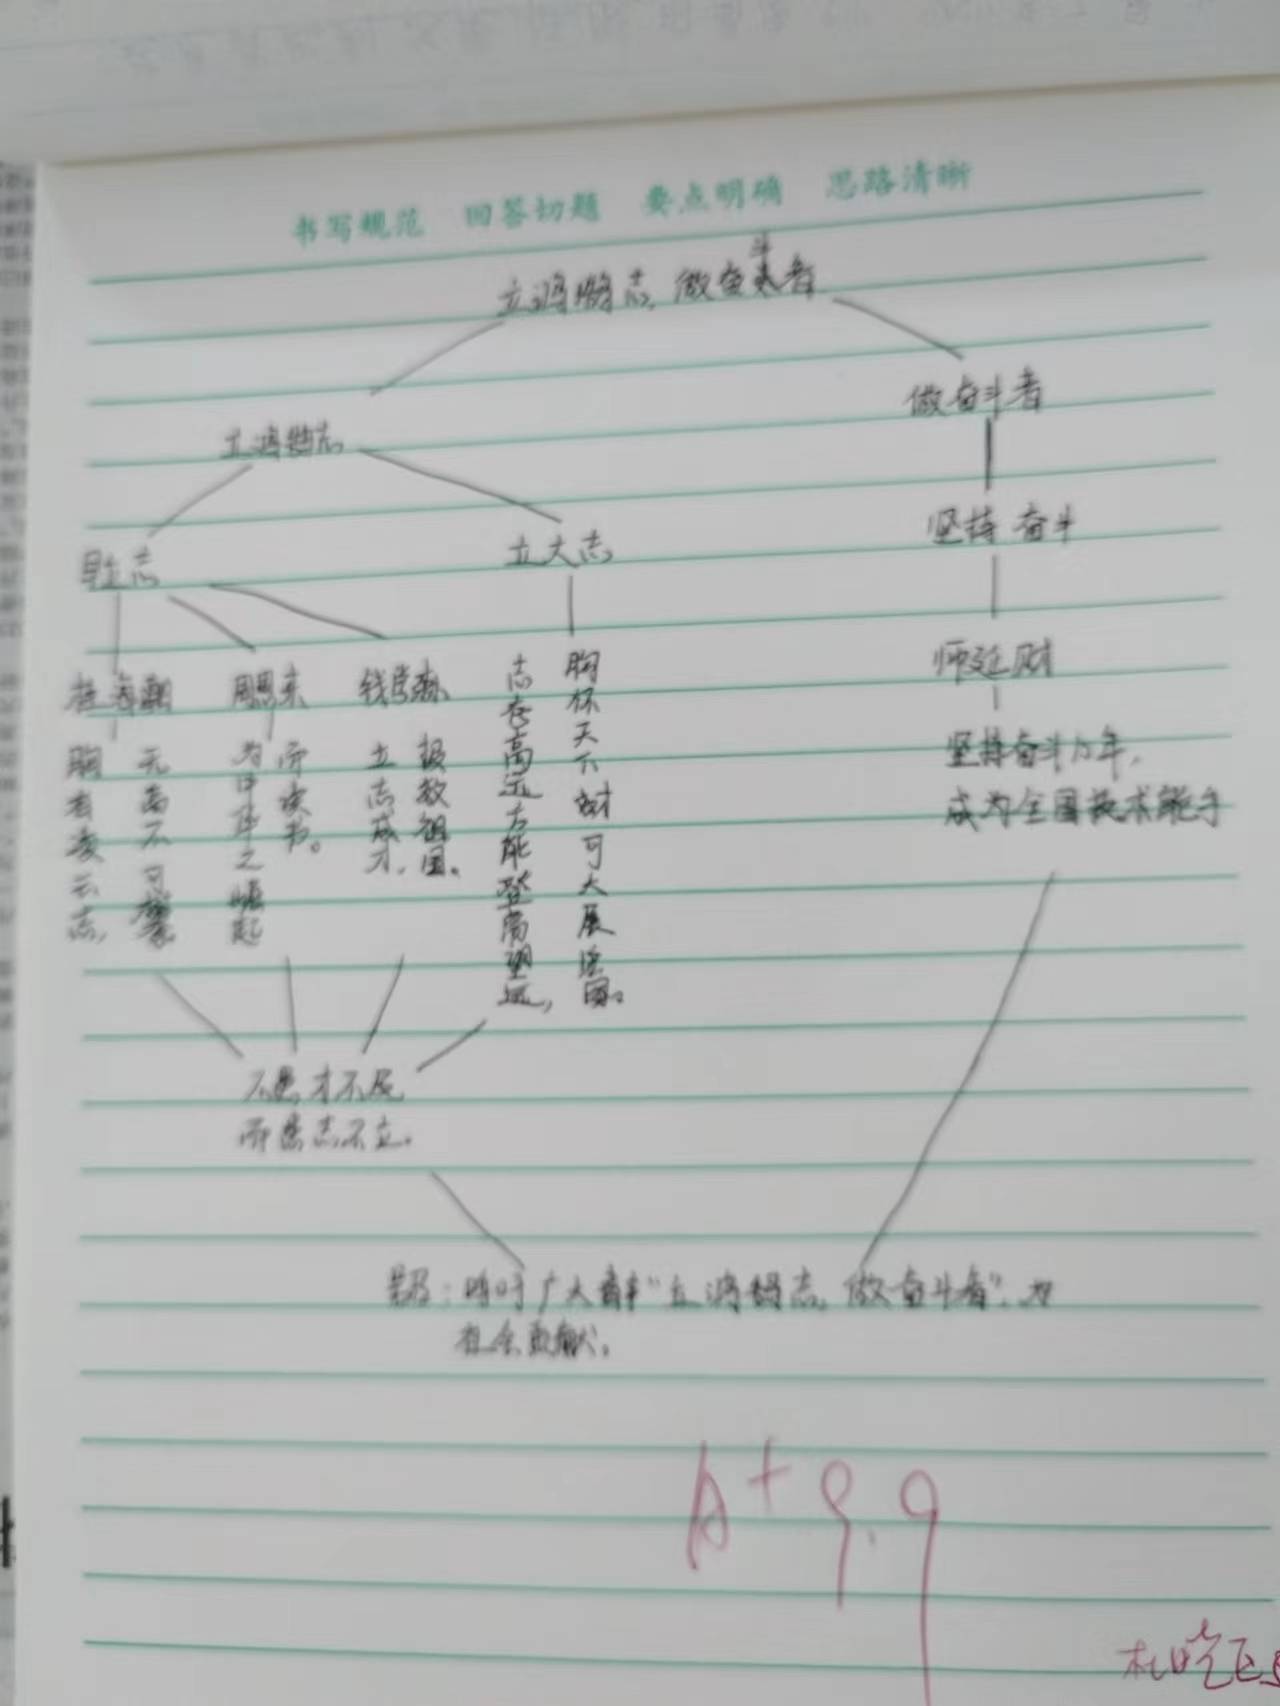 书写规范 回答切题 要点明确 思路清晰
立鸿鹄志,做奋斗者
立鸿鹄志
做奋斗者
早立志
立大志
坚持奋斗
桂海潮
周恩来
钱学森
师延财
胸有凌云志,
无高不可攀
为中华之崛起
而读书。
立志成才,
报效祖国。
志存高远方能登高望远,
胸怀天下才可大展宏图。
坚持奋斗几年,
成为全国技术能手
不患才不及
而患志不立。
号召:呼吁广大青年“立鸿鹄志,做奋斗者”,为
社会贡献。
A+ 9.9